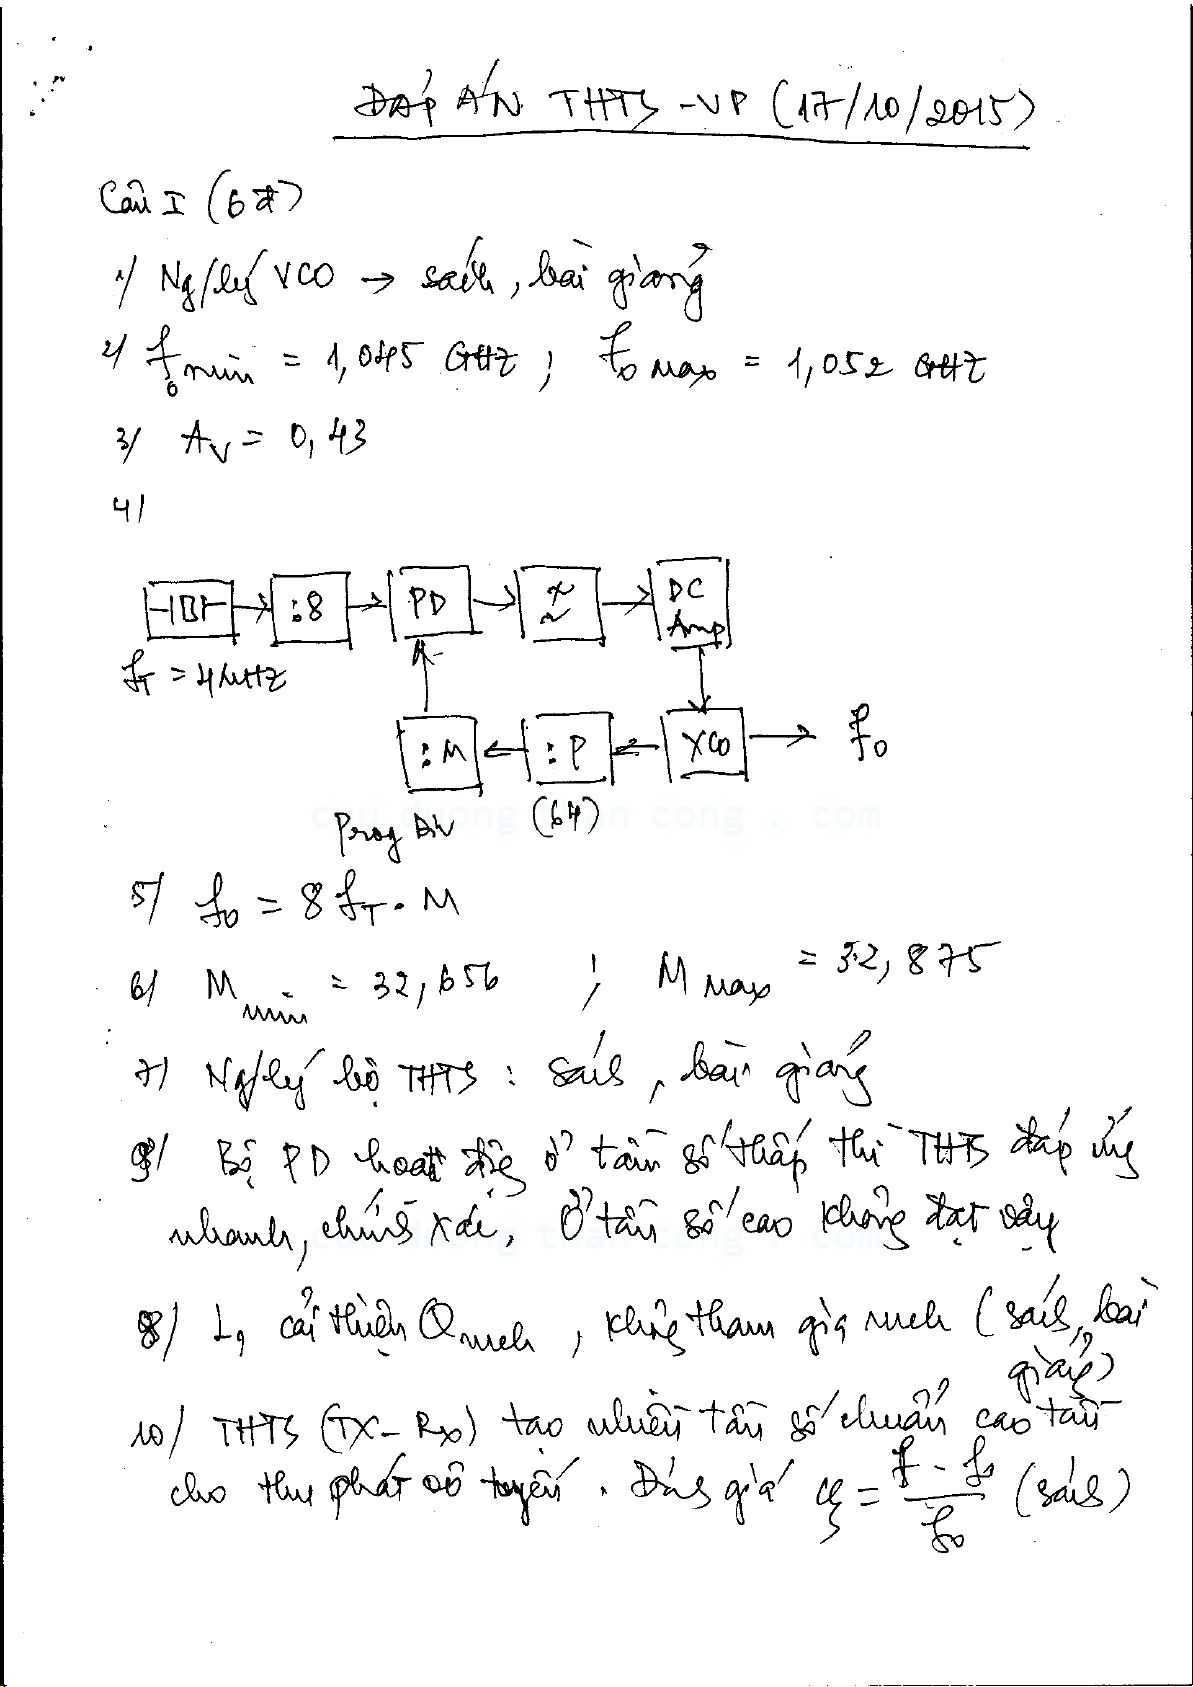 ĐÁP ÁN THTS - VP (17/10/2015)
Câu I (6đ)
1/ Ng/lý VCO → sách, bài giảng
2/ f₀ min = 1,045 GHZ ; f₀ max = 1,052 GHZ
3/ Aᵥ = 0,43
4/
:8 PD ≈ DC Amp
f_T = 4MHZ
:M :P VCO f₀
Prog Div (64)
cuu duong than cong . com
5/ f₀ = 8 f_T . M
6/ M min = 32,656 ; M max = 32,875
7/ Ng/lý bộ THTS : sách, bài giảng
9/ Bộ PD hoạt động ở tần số thấp thì THTS đáp ứng
nhanh, chính xác, ở tần số cao không đạt vậy
cuu duong than cong . com
8/ L₁ cải thiện Q mch, không tham gia mch (sách, bài
giảng)
10/ THTS (TX - Rx) tạo nhiều tần số chuẩn cao tần
cho thu phát vô tuyến. Đánh giá = (f - f₀)/f₀ (sách)